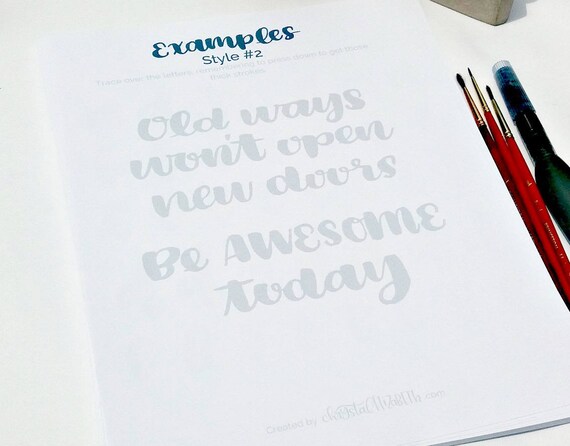 Examples
Style #2
Trace over the letters, remembering to press down to get those
thick strokes
Old ways
won't open
new doors
Be AWESOME
today
Created by .com